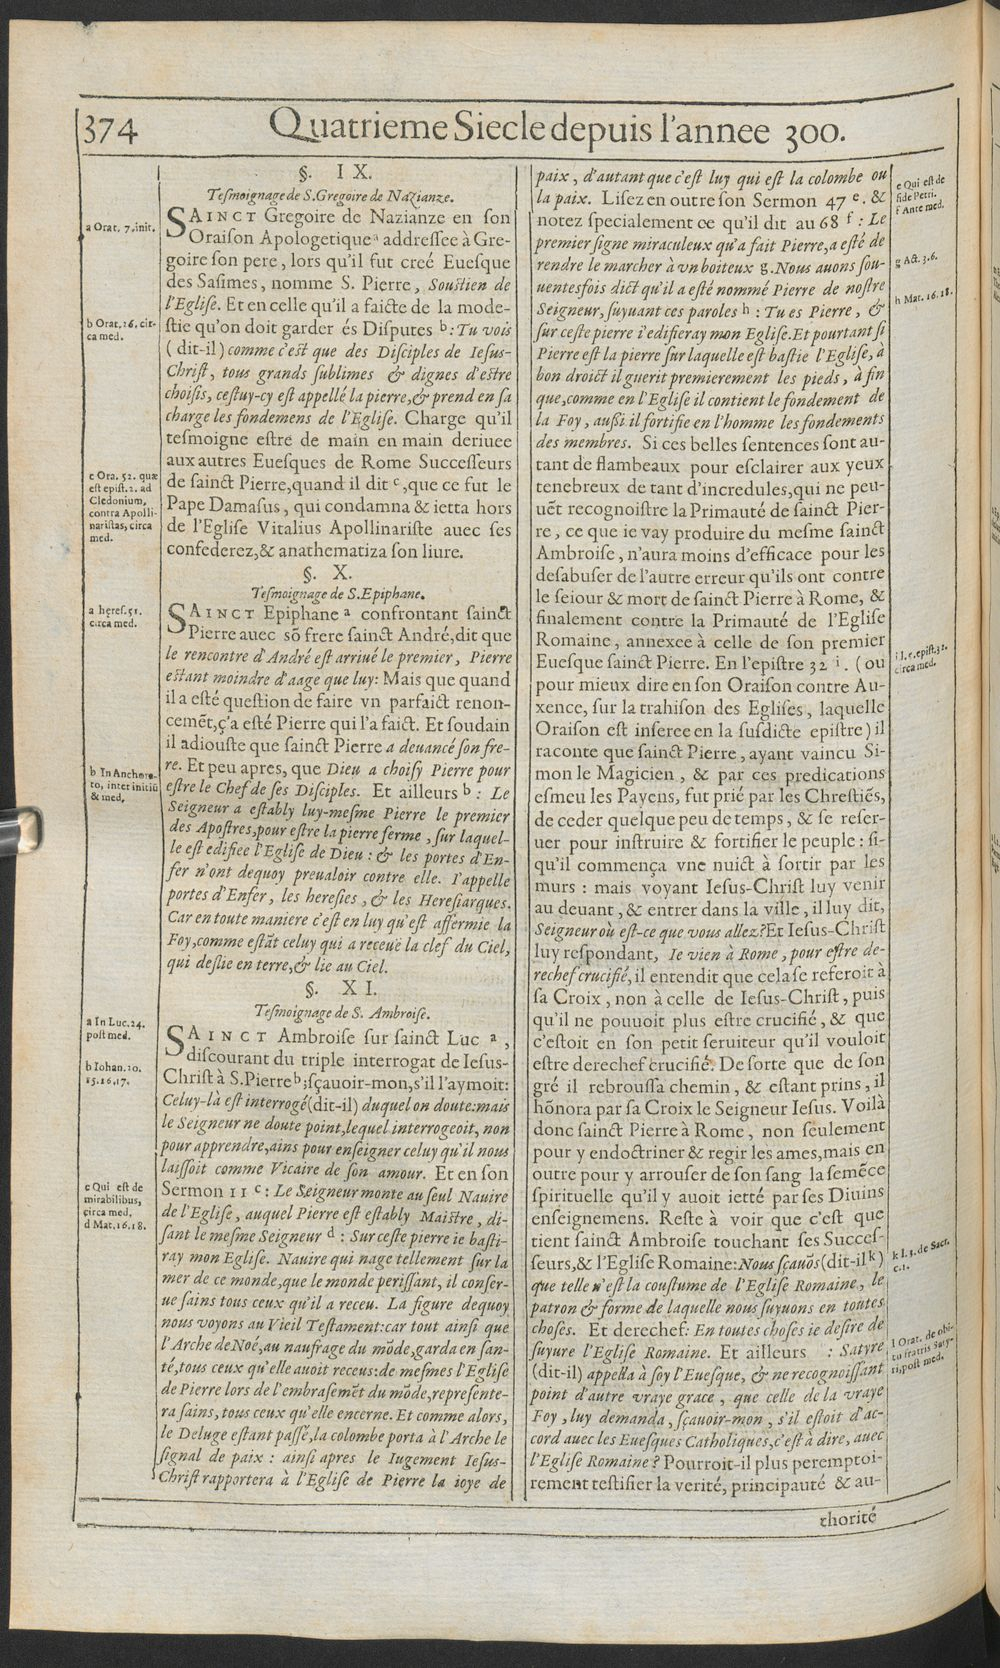 374
Quatrieme Siecle depuis l'annee 300.
§. IX.
Tesmoignage de S. Gregoire de Nazianze.
a Orat. 7. init.
SAINCT Gregoire de Nazianze en son
Oraison Apologetique a addressee à Gre-
goire son pere, lors qu'il fut creé Euesque
des Sasimes, nomme S. Pierre, Soustien de
l'Eglise. Et en celle qu'il a faicte de la mode-
b Orat. 26. cir-
ca med.
stie qu'on doit garder és Disputes b: Tu vois
(dit-il) comme c'est que des Disciples de Iesus-
Christ, tous grands sublimes & dignes d'estre
choisis, cestuy-cy est appellé la pierre, & prend en sa
charge les fondemens de l'Eglise. Charge qu'il
tesmoigne estre de main en main deriuee
aux autres Euesques de Rome Successeurs
c Ora. 52. quæ
est epist. 2. ad
Cledonium,
contra Apolli-
naristas, circa
med.
de sainct Pierre, quand il dit c, que ce fut le
Pape Damasus, qui condamna & ietta hors
de l'Eglise Vitalius Apollinariste auec ses
confederez, & anathematiza son liure.
§. X.
Tesmoignage de S. Epiphane.
a heres. 51.
circa med.
SAINCT Epiphane a confrontant sainct
Pierre auec sõ frere sainct André, dit que
le rencontre d'André est arriué le premier, Pierre
estant moindre d'aage que luy: Mais que quand
il a esté question de faire vn parfaict renon-
cemẽt, ç'a esté Pierre qui l'a faict. Et soudain
il adiouste que sainct Pierre a deuancé son fre-
re. Et peu apres, que Dieu a choisy Pierre pour
b In Anchora-
to, inter initiũ
& med,
estre le Chef de ses Disciples. Et ailleurs b: Le
Seigneur a estably luy-mesme Pierre le premier
des Apostres, pour estre la pierre ferme, sur laquel-
le est edifiee l'Eglise de Dieu: & les portes d'En-
fer n'ont dequoy preualoir contre elle. I'appelle
portes d'Enfer, les heresies, & les Heresiarques.
Car en toute maniere c'est en luy qu'est affermie la
Foy, comme estãt celuy qui a receuë la clef du Ciel,
qui deslie en terre, & lie au Ciel.
§. XI.
Tesmoignage de S. Ambroise.
a In Luc. 24.
post med.
SAINCT Ambroise sur sainct Luc a,
discourant du triple interrogat de Iesus-
b Iohan. 20.
15.16.17.
Christ à S. Pierre b; sçauoir-mon, s'il l'aymoit:
Celuy-là est interrogé (dit-il) duquel on doute: mais
le Seigneur ne doute point, lequel interrogeoit, non
pour apprendre, ains pour enseigner celuy qu'il nous
laissoit comme Vicaire de son amour. Et en son
c Qui est de
mirabilibus,
circa med.
d Mat. 16.18.
Sermon 11 c: Le Seigneur monte au seul Nauire
de l'Eglise, auquel Pierre est estably Maistre, di-
sant le mesme Seigneur d: Sur ceste pierre ie basti-
ray mon Eglise. Nauire qui nage tellement sur la
mer de ce monde, que le monde perissant, il conser-
ue sains tous ceux qu'il a receu. La figure dequoy
nous voyons au Vieil Testament: car tout ainsi que
l'Arche de Noé, au naufrage du mõde, garda en san-
té, tous ceux qu'elle auoit receus: de mesmes l'Eglise
de Pierre lors de l'embrasemẽt du mõde, represente-
ra sains, tous ceux qu'elle encerne. Et comme alors,
le Deluge estant passé, la colombe porta à l'Arche le
signal de paix: ainsi apres le Iugement Iesus-
Christ rapportera à l'Eglise de Pierre la ioye de
paix, d'autant que c'est luy qui est la colombe ou
e Qui est de
fide Petri.
f Ante med.
la paix. Lisez en outre son Sermon 47 e. &
notez specialement ce qu'il dit au 68 f: Le
premier signe miraculeux qu'a fait Pierre, a esté de
g Act. 3.6.
rendre le marcher à vn boiteux g. Nous auons sou-
uentesfois dict qu'il a esté nommé Pierre de nostre
h Mat. 16.18.
Seigneur, suyuant ces paroles h: Tu es Pierre, &
sur ceste pierre i'edifieray mon Eglise. Et pourtant si
Pierre est la pierre sur laquelle est bastie l'Eglise, à
bon droict il guerit premierement les pieds, à fin
que, comme en l'Eglise il contient le fondement de
la Foy, aussi il fortifie en l'homme les fondements
des membres. Si ces belles sentences sont au-
tant de flambeaux pour esclairer aux yeux
tenebreux de tant d'incredules, qui ne peu-
uẽt recognoistre la Primauté de sainct Pier-
re, ce que ie vay produire du mesme sainct
Ambroise, n'aura moins d'efficace pour les
desabuser de l'autre erreur qu'ils ont contre
le seiour & mort de sainct Pierre à Rome, &
finalement contre la Primauté de l'Eglise
Romaine, annexee à celle de son premier
i l. 5. epist. 32.
circa med.
Euesque sainct Pierre. En l'epistre 32 i. (ou
pour mieux dire en son Oraison contre Au-
xence, sur la trahison des Eglises, laquelle
Oraison est inseree en la susdicte epistre) il
raconte que sainct Pierre, ayant vaincu Si-
mon le Magicien, & par ces predications
esmeu les Payens, fut prié par les Chrestiẽs,
de ceder quelque peu de temps, & se reser-
uer pour instruire & fortifier le peuple: si-
qu'il commença vne nuict à sortir par les
murs: mais voyant Iesus-Christ luy venir
au deuant, & entrer dans la ville, il luy dit,
Seigneur où est-ce que vous allez? Et Iesus-Christ
luy respondant, Ie vien à Rome, pour estre de-
rechef crucifié, il entendit que cela se referoit à
sa Croix, non à celle de Iesus-Christ, puis
qu'il ne pouuoit plus estre crucifié, & que
c'estoit en son petit seruiteur qu'il vouloit
estre derechef crucifié. De sorte que de son
gré il rebroussa chemin, & estant prins, il
hõnora par sa Croix le Seigneur Iesus. Voilà
donc sainct Pierre à Rome, non seulement
pour y endoctriner & regir les ames, mais en
outre pour y arrouser de son sang la semẽce
spirituelle qu'il y auoit ietté par ses Diuins
enseignemens. Reste à voir que c'est que
tient sainct Ambroise touchant ses Succes-
k l. 3. de Sacr.
c. 1.
seurs, & l'Eglise Romaine: Nous sçauõs (dit-il k)
que telle n'est la coustume de l'Eglise Romaine, le
patron & forme de laquelle nous suyuons en toutes
choses. Et derechef: En toutes choses ie desire de
l Orat. de obi-
tu fratris Saty-
ri, post med.
suyure l'Eglise Romaine. Et ailleurs : Satyre
(dit-il) appella à soy l'Euesque, & ne recognoissant
point d'autre vraye grace, que celle de la vraye
Foy, luy demanda, sçauoir-mon, s'il estoit d'ac-
cord auec les Euesques Catholiques, c'est à dire, auec
l'Eglise Romaine? Pourroit-il plus peremptoi-
rement testifier la verité, principauté & au-
thorité